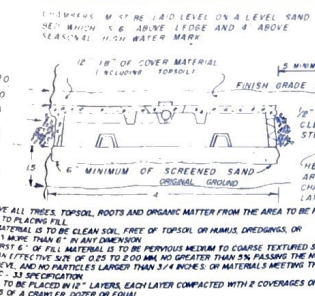 CHAMBERS MUST BE LAID LEVEL ON A LEVEL SAND
BED WHICH IS 6" ABOVE LEDGE AND 4" ABOVE
SEASONAL HIGH WATER MARK
12" 18" OF COVER MATERIAL
(INCLUDING TOPSOIL)
5 MINIM
FINISH GRADE
1/2"
CLE
STON
15
6" MINIMUM OF SCREENED SAND
ORIGINAL GROUND
4
HE
AR
CHA
LA
VE ALL TREES, TOPSOIL, ROOTS AND ORGANIC MATTER FROM THE AREA TO BE F
TO PLACING FILL
MATERIAL IS TO BE CLEAN SOIL, FREE OF TOPSOIL OR HUMUS, DREDGINGS, OR
MORE THAN 6" IN ANY DIMENSION
RST 6" OF FILL MATERIAL IS TO BE PERVIOUS MEDIUM TO COARSE TEXTURED S
AN EFFECTIVE SIZE OF 0.25 TO 2.00 MM, NO GREATER THAN 5% PASSING THE N
EVE, AND NO PARTICLES LARGER THAN 3/4 INCHES: OR MATERIALS MEETING TH
C-33 SPECIFICATION
TO BE PLACED IN 12" LAYERS, EACH LAYER COMPACTED WITH 2 COVERAGES O
S OF A CRAWLER DOZER OR EQUAL